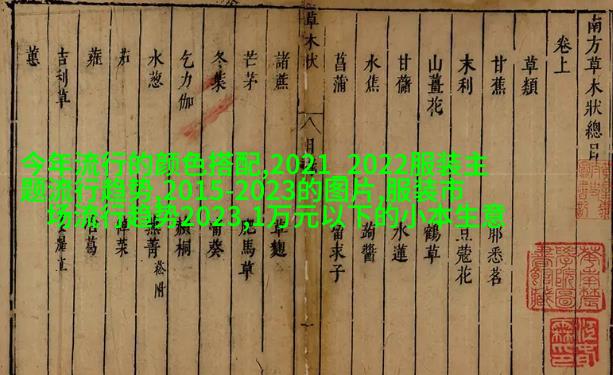 今年流行的颜色搭配,2021_2022服装主
题流行趋势,2015-2023的图片,服装市
场流行趋势2023,1万元以下的小本生意
南方草木狀總目
卷上
草類
甘蕉 耶悉茗
末利 豆蔻花
山薑花 鶴草
甘藷 水蓮
水蕉 蒟醬
菖蒲 留求子
草木狀 八目
諸蔗 草麴
芒茅 馬草
冬葉 葵
乞力伽 桐
水葱 蕪菁 菘附
茄 菜
蕹 葛
吉利草
蕙